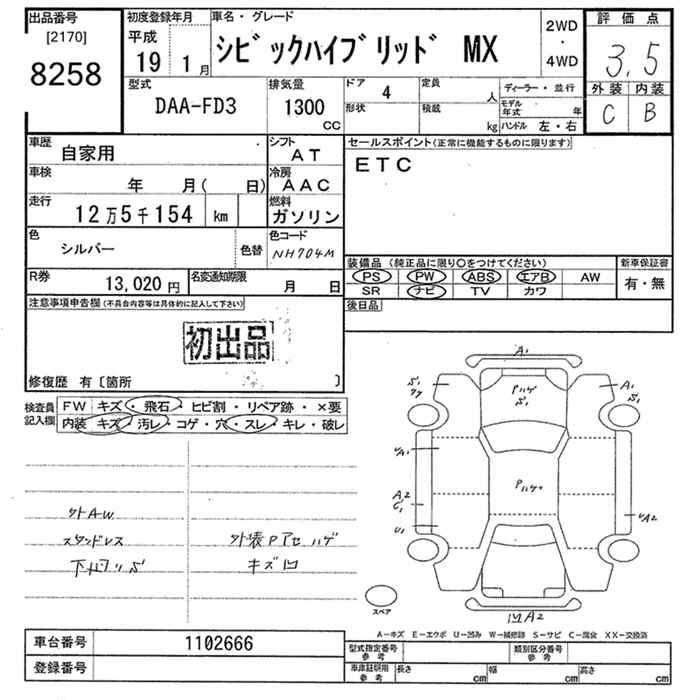 出品番号 [2170] 8258
初度登録年月 平成 19 1月
車名・グレード シビックハイブリッド MX
2WD・4WD
評価点 3.5
外装 C 内装 B
型式 DAA-FD3
排気量 1300 CC
ドア 4
形状
定員 人
積載 kg
ディーラー・並行
モデル年式 年
ハンドル 左・右
車歴 自家用
シフト AT
セールスポイント(正常に機能するものに限ります)
ETC
車検 年 月( 日)
冷房 AAC
走行 12万5千154 km
燃料 ガソリン
色 シルバー 色替
色コード NH704M
装備品 (純正品に限り○をつけてください)
新車保証書 有・無
PS PW ABS エアB AW
SR ナビ TV カワ
R券 13,020円
名変通知期限 月 日
後日品
注意事項申告欄(不具合内容等は具体的に記入して下さい)
初出品
修復歴 有〔箇所 〕
検査員記入欄
FW キズ・飛石・ヒビ割・リペア跡・×要
内装 キズ・汚レ・コゲ・穴・スレ・キレ・破レ
外AW
スタッドレス
下廻りS
外装Pアセ ハゲ
キズ凹
A1
S1
Pハゲ
S1
A1
S1
UA1
A2
C1
U1
Pハゲ
UA2
凹A2
スペア
A-キズ E-エクボ U-凹み W-補修跡 S-サビ C-腐食 XX-交換済
車台番号 1102666
登録番号
型式指定番号 参考
類別区分番号 参考
車庫証明用 参考
長さ cm 幅 cm 高さ cm